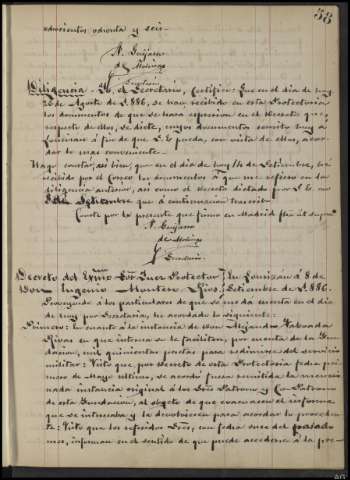 58
ochocientos ochenta y seis
R. Guijarro
de Molina
Secretario
Diligencia - Yo, el Secretario, Certifico: Que en el dia de hoy
26 de Agosto de 1.886, se han recibido en esta Protectoria
los documentos de que se hara expresion en el Decreto que,
respecto de ellos, se dicte, cuyos documentos remito hoy á
Lourizan á fin de que S. E. pueda, con vista de ellos, acor-
dar lo mas conveniente.
Hago constar, asi bien, que en el dia de hoy 14 de Setiembre, he
recibido por el Correo los documentos á que me refiero en la
diligencia anterior, asi como el decreto dictado por S. E. en
8 de Setiembre que á continuacion transcribo.
Conste por la presente que firmo en Madrid fha ut supra
R. Guijarro
de Molina
Secretario
Decreto del Exmo Sor Juez Protector } En Lourizan á 8 de
Don Eugenio Montero Rios } Setiembre de 1.886.
Proveyendo á los particulares de que se me da cuenta en el dia
de hoy por Secretaria, he acordado lo siguiente:
Primero: En cuanto á la instancia de Don Alejandro Taboada
Rivas en que interesa se le faciliten, por cuenta de la Fun-
dacion, mil quinientas pesetas para redimirse del servicio
militar: Visto que por decreto de esta Protectoria fecha pri-
mero de Mayo ultimo, se acordó fuese remitida la mencio-
nada instancia original á los Sres Patrono y Co-Patrono
de esta Fundacion, al objeto de que evacuasen el informe
que se interesaba y la devolviesen para acordar lo proceden-
te: Visto que los referidos Sres, con fecha once del pasado
mes, informan en el sentido de que puede accederse á la pre-